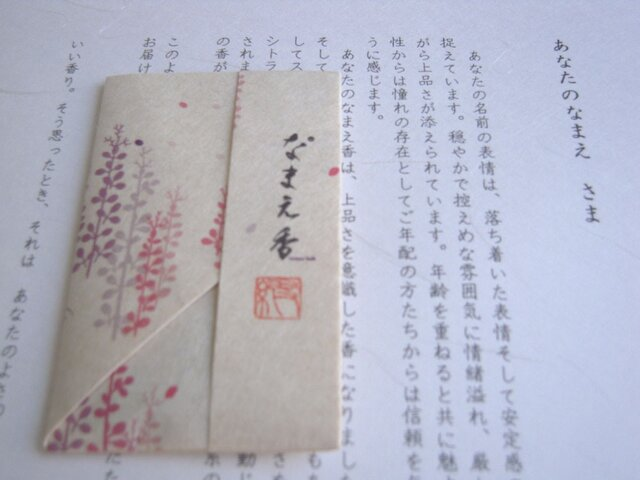 あなたのなまえ さま
あなたの名前の表情は、落ち着いた表情そして安定感
捉えています。穏やかで控えめな雰囲気に情緒溢れ、厳
がら上品さが添えられています。年齢を重ねると共に魅
性からは憧れの存在としてご年配の方たちからは信頼を
うに感じます。
あなたのなまえ香は、上品さを意識した香になりました
そし
して
シトラ
され
の香が
このよ
お届け
いい香り。そう思ったとき、それは あなたのよさの
なまえ香